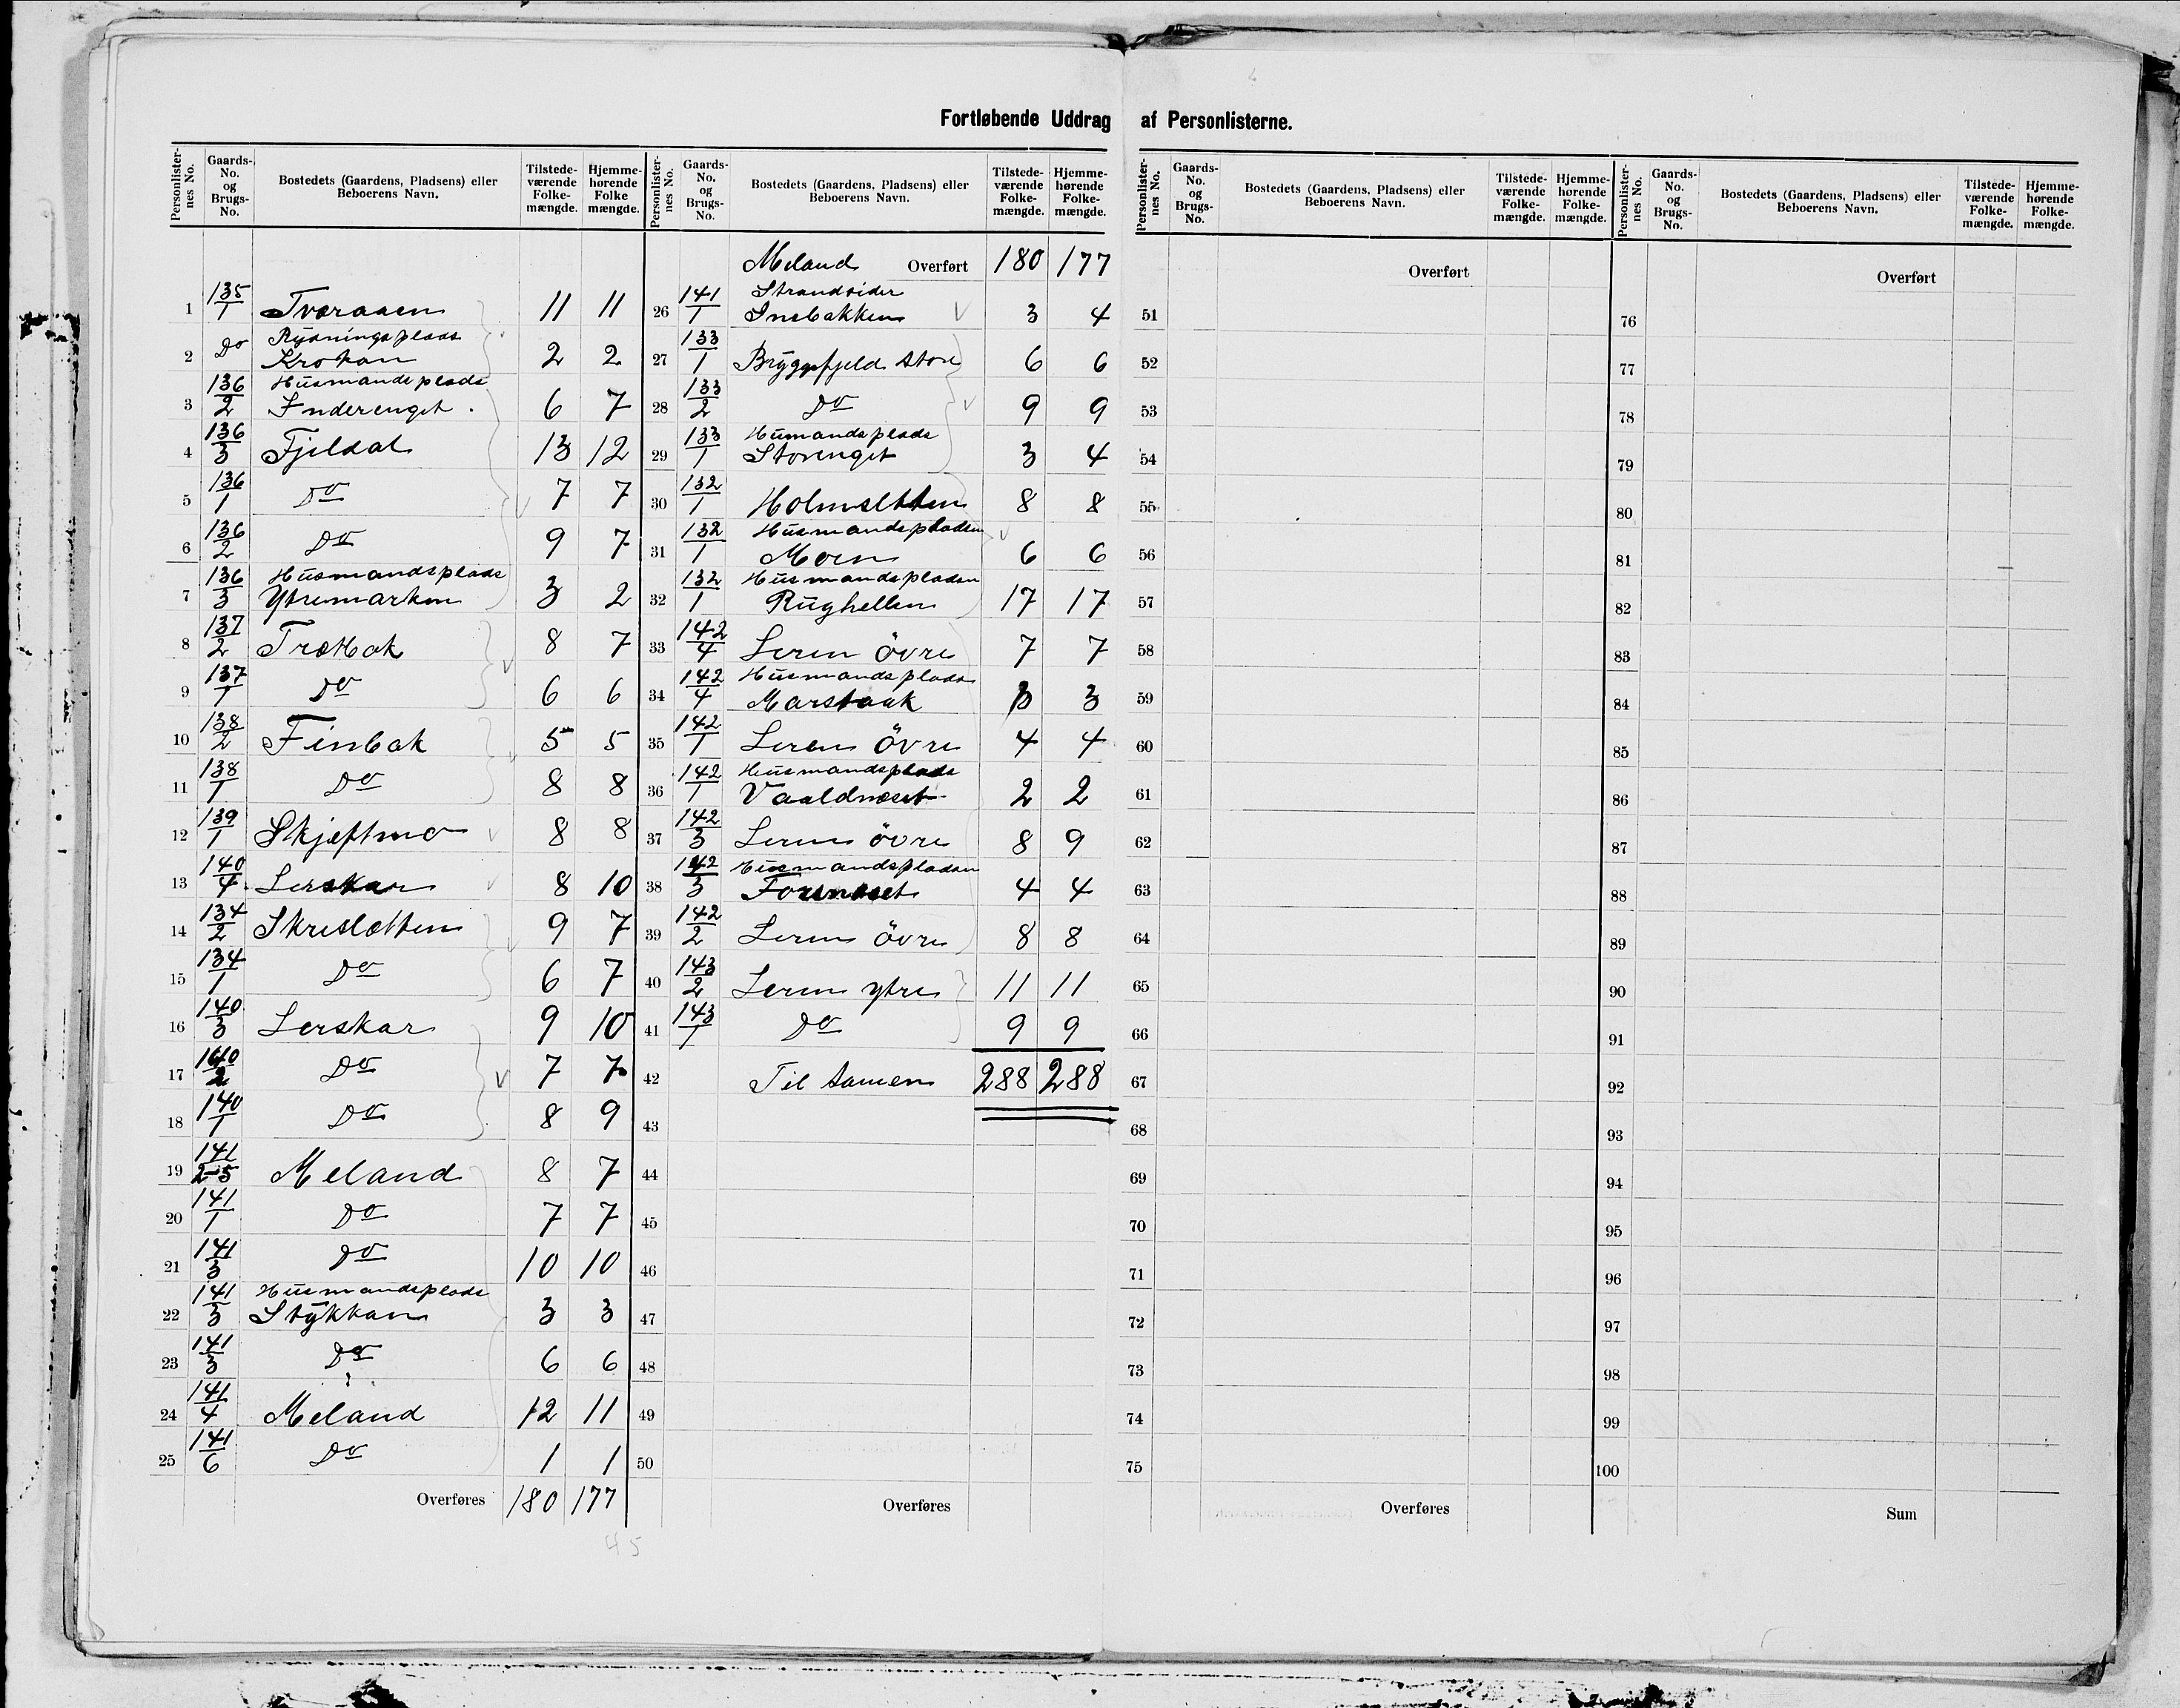 Fortløbende Uddrag af Personlisterne.
Personlisternes No. Gaards-No. og Brugs-No. Bostedets (Gaardens, Pladsens) eller Beboerens Navn. Tilstedeværende Folkemængde. Hjemmehørende Folkemængde.
1 135/1 Tveraaen 11 11
2 Do Rydningsplads Krokan 2 2
3 136/2 Husmandsplads Inderenget. 6 7
4 136/3 Fjeldal 13 12
5 136/1 Do 7 7
6 136/2 Do 9 7
7 136/3 Husmandsplads Ytremarken 3 2
8 137/2 Trættbak 8 7
9 137/1 Do 6 6
10 138/2 Finbak 5 5
11 138/1 Do 8 8
12 139/1 Skjeftmo 8 8
13 140/4 Lerskar 8 10
14 134/2 Skresletten 9 7
15 134/1 Do 6 7
16 140/3 Lerskar 9 10
17 140/2 Do 7 7
18 140/1 Do 8 9
19 141/2-5 Meland 8 7
20 141/1 Do 7 7
21 141/3 Do 10 10
22 141/3 Husmandsplads Stykkan 3 3
23 141/3 Do 6 6
24 141/4 Meland 12 11
25 141/6 Do 1 1
Overføres 180 177
45
Personlisternes No. Gaards-No. og Brugs-No. Bostedets (Gaardens, Pladsens) eller Beboerens Navn. Tilstedeværende Folkemængde. Hjemmehørende Folkemængde.
Meland Overført 180 177
26 141/1 Strandsider Inebakken 3 4
27 133/1 Bryggfjeld store 6 6
28 133/2 Do 9 9
29 133/1 Humandsplads Storenget 3 4
30 132/1 Holmsletten 8 8
31 132/1 Husmandspladsen Moen 6 6
32 132/1 Husmandspladsen Rughellen 17 17
33 142/4 Leren övre 7 7
34 142/4 Husmandsplads Marstaak 3 3
35 142/1 Leren Övre 4 4
36 142/1 Husmandsplads Vaaldnæset 2 2
37 142/3 Leren övre 8 9
38 142/3 Husmandspladsen 4 4
39 142/2 Leren övre 8 8
40 143/2 Leren ytre 11 11
41 143/1 Do 9 9
42 Til samen 288 288
43
44
45
46
47
48
49
50
Overføres
Personlisternes No. Gaards-No. og Brugs-No. Bostedets (Gaardens, Pladsens) eller Beboerens Navn. Tilstedeværende Folkemængde. Hjemmehørende Folkemængde.
Overført
51
52
53
54
55
56
57
58
59
60
61
62
63
64
65
66
67
68
69
70
71
72
73
74
75
Overføres
Personlisternes No. Gaards-No. og Brugs-No. Bostedets (Gaardens, Pladsens) eller Beboerens Navn. Tilstedeværende Folkemængde. Hjemmehørende Folkemængde.
Overført
76
77
78
79
80
81
82
83
84
85
86
87
88
89
90
91
92
93
94
95
96
97
98
99
100
Sum